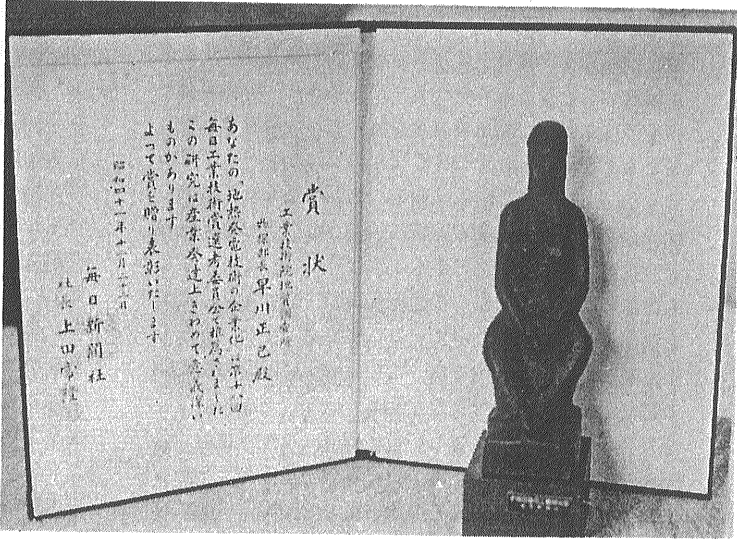 賞状
工業技術院地質調査所
物探部長 早川正己殿
あなたの「地熱発電技術の企業化」は第十八回
毎日工業技術賞選考委員会で推薦されました
この研究は産業発達上きわめて意義深い
ものがあります
よって賞を贈り表彰いたします
昭和四十一年十一月 日
毎日新聞社
社長 上田常隆